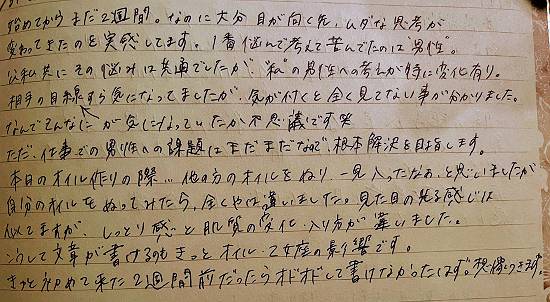 始めてからまだ2週間。なのに大分目が向く先、ムダな思考が
変わってきたのを実感してます。1番悩んで考えて苦んでたのは"男性"。
公私共にその悩みは共通でしたが、"私"の男性への考えが特に変化有り。
相手の目線すら気になってましたが、気が付くと全く見てない事が分かりました。
なんでそんなにが気になっていたか不思議です笑
ただ、仕事での男性への課題はまだまだなので、根本解決を目指します。
本日のオイル作りの際…他の方のオイルをぬり、一見入ったなぁ、と思いましたが
自分のオイルをぬってみたら、全くやは違いました。見た目の光る感じは
似てますが、しっとり感と肌質の変化・入り方が違いました。
こうして文章が書けるのもきっとオイル・乙女座の影響です。
きっと初めて来た2週間前だったらオドオドして書けなかったはず。想像つきます。